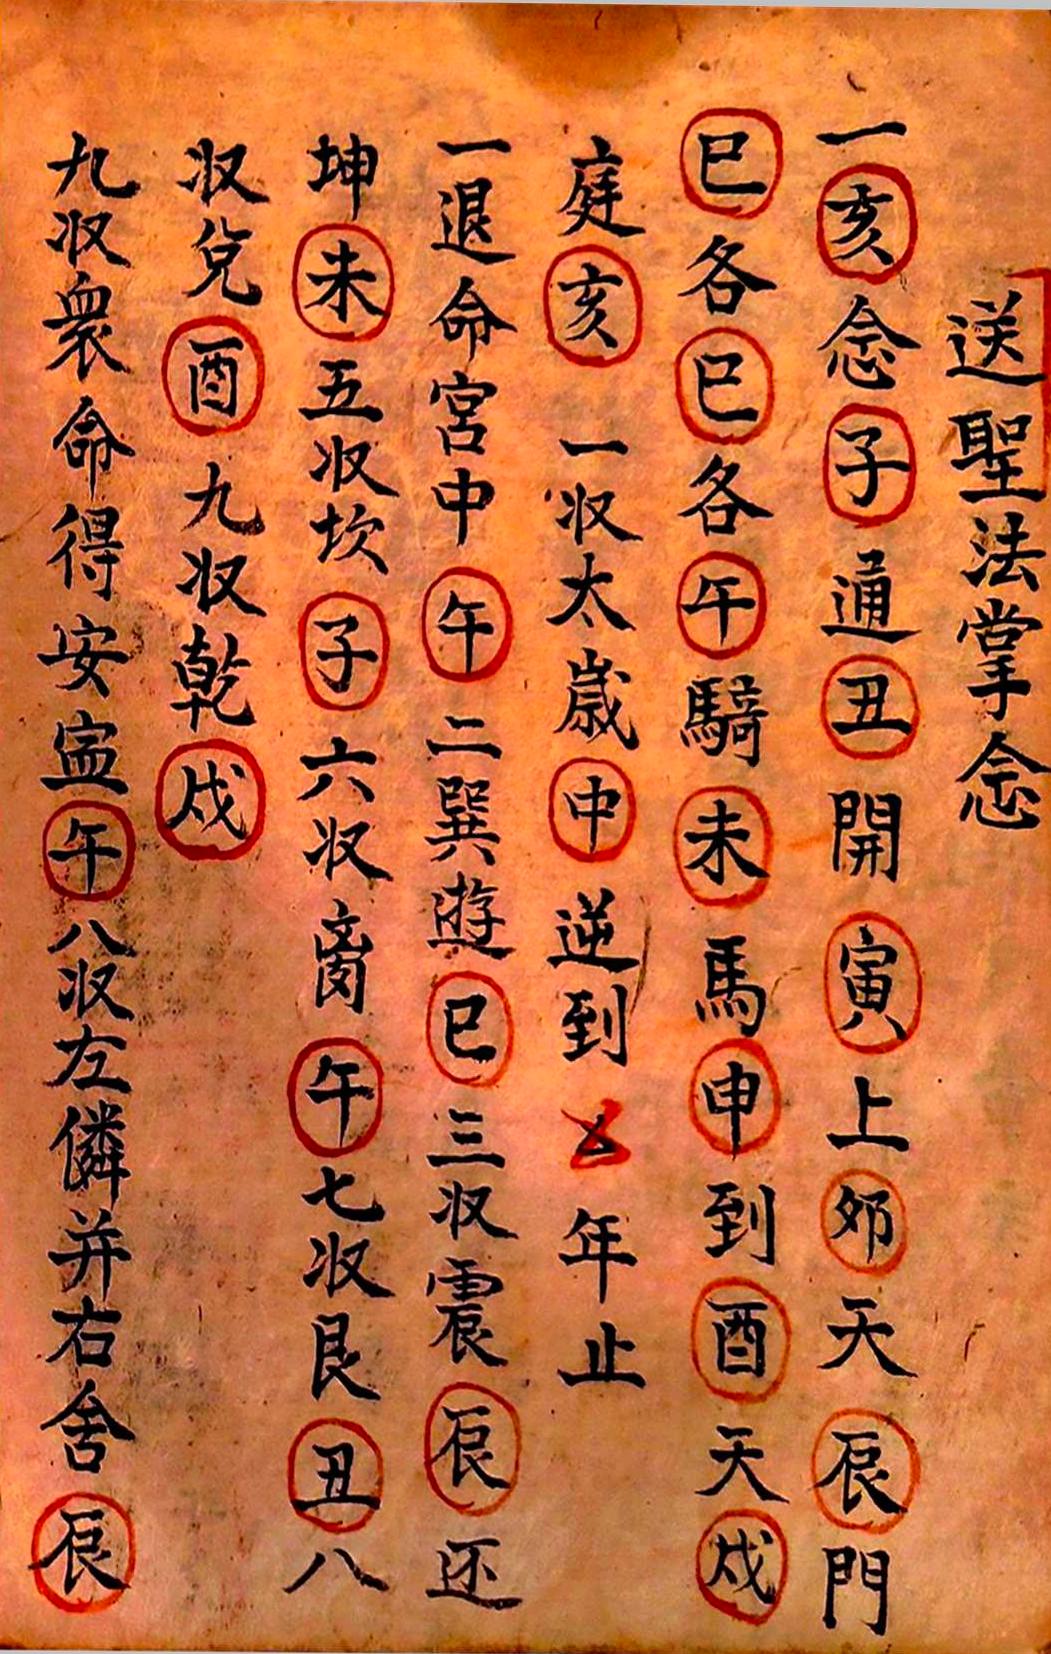 送聖法掌念
一亥念子通丑開寅上夘天辰門
巳各巳各午騎未馬申到酉天戌
庭亥一収太歳中逆到年止
一退命宮中午二巽遊巳三収震辰还
坤未五収坎子六収离午七収艮丑八
収兌酉九収乾戌
九収衆命得安寍午八収左隣并右舍辰